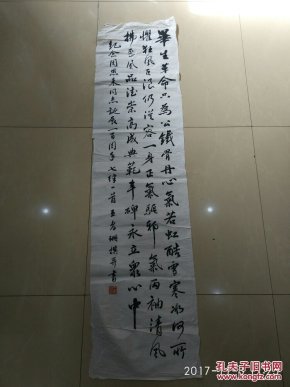 畢生革命只為公鐵骨丹心氣若虹酷雪寒冰何所
懼狂風巨浪仍從容一身正氣驅邪氣兩袖清風
拂惡風品德崇高成典範丰碑永立眾心中
紀念周恩來同志誕辰一百周年七律一首 王 撰并書
2017
孔夫子旧书网